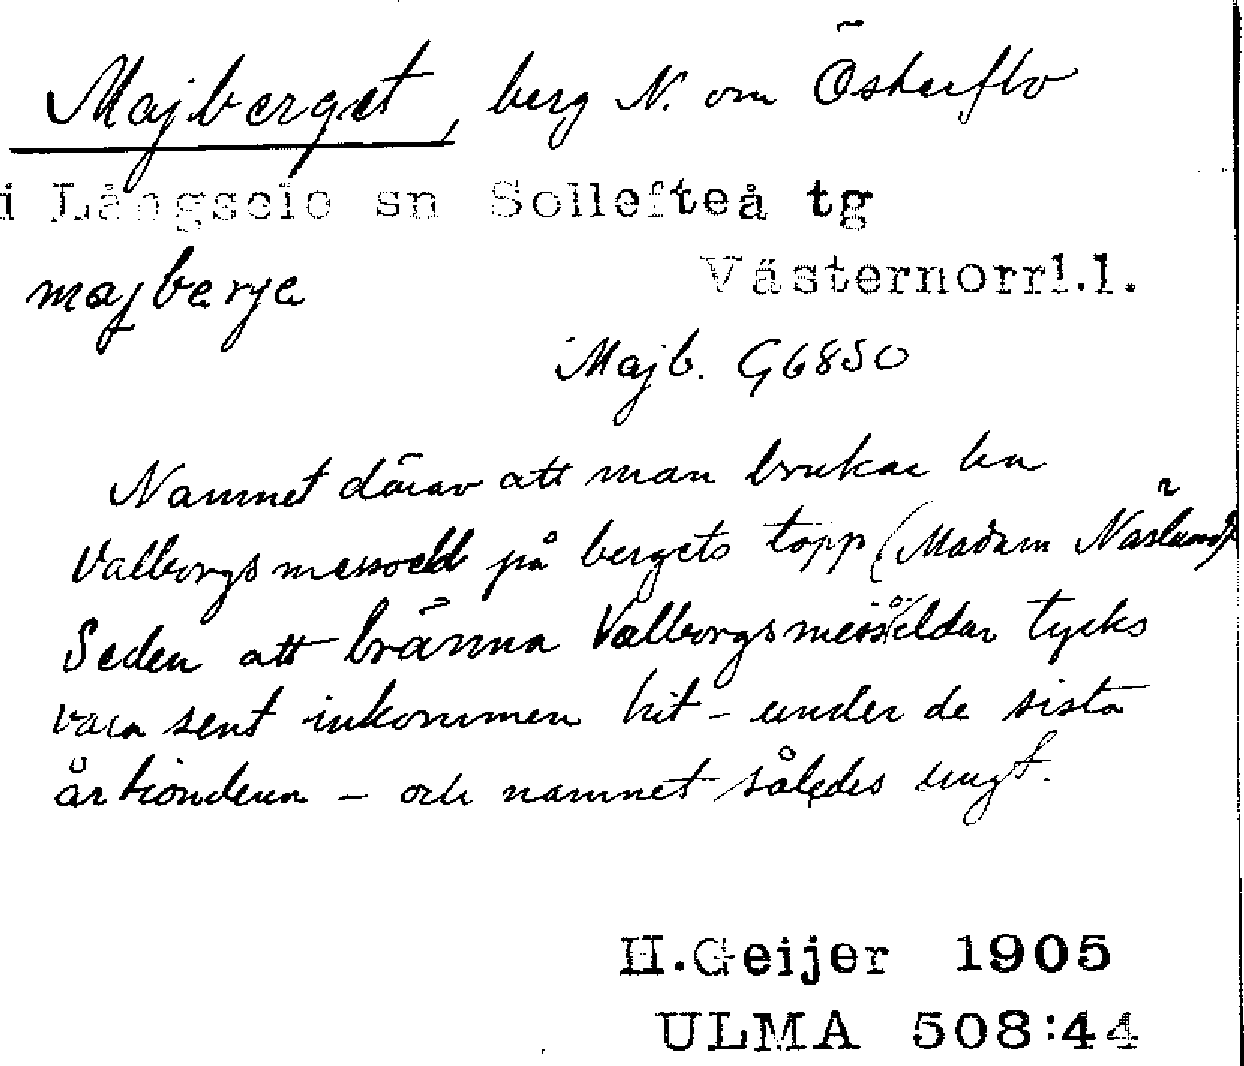 Majberget, berg N. om Österflo
i Långsele sn Sollefteå tg
majberje Västernorrl.l.
Majb. G6850
Namnet därav att man brukar ha
Valborgsmessoeld på bergets topp (Madam Näslund)
Seden att bränna Valborgsmessoeldar tycks
vara sent inkommen hit – under de sista
årtiondena – och namnet således ungt.
H.Geijer 1905
ULMA 508:44